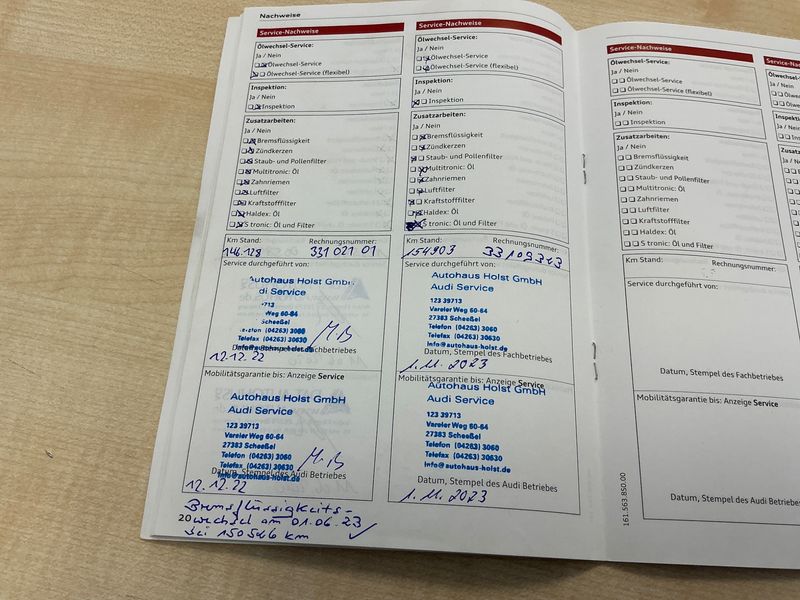 Nachweise
Service-Nachweise
Ölwechsel-Service:
Ja / Nein
Ölwechsel-Service
Ölwechsel-Service (flexibel)
Inspektion:
Ja / Nein
Inspektion
Zusatzarbeiten:
Ja / Nein
Bremsflüssigkeit
Zündkerzen
Staub- und Pollenfilter
Multitronic: Öl
Zahnriemen
Luftfilter
Kraftstofffilter
Haldex: Öl
S tronic: Öl und Filter
Km Stand: Rechnungsnummer:
146.128 331 021 01
Service durchgeführt von:
Autohaus Holst GmbH
di Service
713
Weg 60-64
Scheeßel
(04263) 3060
Telefax (04263) 30630
Info@autohaus-holst.de
Datum, Stempel des Fachbetriebes
12.12.22
Mobilitätsgarantie bis: Anzeige Service
Autohaus Holst GmbH
Audi Service
123 39713
Vareler Weg 60-64
27383 Scheeßel
Telefon (04263) 3060
Telefax (04263) 30630
Info@autohaus-holst.de
Datum, Stempel des Audi Betriebes
12.12.22
Bremsflüssigkeits-
20 wechsel am 01.06.23
bei 150546 km
Service-Nachweise
Ja / Nein
Ölwechsel-Service
Ölwechsel-Service (flexibel)
Inspektion:
Ja / Nein
Inspektion
Zusatzarbeiten:
Ja / Nein
Bremsflüssigkeit
Zündkerzen
Staub- und Pollenfilter
Multitronic: Öl
Zahnriemen
Luftfilter
Kraftstofffilter
Haldex: Öl
S tronic: Öl und Filter
Km Stand: Rechnungsnummer:
154903 33109323
Service durchgeführt von:
Autohaus Holst GmbH
Audi Service
123 39713
Vareler Weg 60-64
27383 Scheeßel
Telefon (04263) 3060
Telefax (04263) 30630
Info@autohaus-holst.de
Datum, Stempel des Fachbetriebes
1.11.2023
Mobilitätsgarantie bis: Anzeige Service
Autohaus Holst GmbH
Audi Service
123 39713
Vareler Weg 60-64
27383 Scheeßel
Telefon (04263) 3060
Telefax (04263) 30630
Info@autohaus-holst.de
Datum, Stempel des Audi Betriebes
1.11.2023
Service-Nachweise
Ölwechsel-Service:
Ja / Nein
Ölwechsel-Service
Ölwechsel-Service (flexibel)
Inspektion:
Ja / Nein
Inspektion
Zusatzarbeiten:
Ja / Nein
Bremsflüssigkeit
Zündkerzen
Staub- und Pollenfilter
Multitronic: Öl
Zahnriemen
Luftfilter
Kraftstofffilter
Haldex: Öl
S tronic: Öl und Filter
Km Stand: Rechnungsnummer:
Service durchgeführt von:
Datum, Stempel des Fachbetriebes
Mobilitätsgarantie bis: Anzeige Service
Datum, Stempel des Audi Betriebes
161.563.850.00